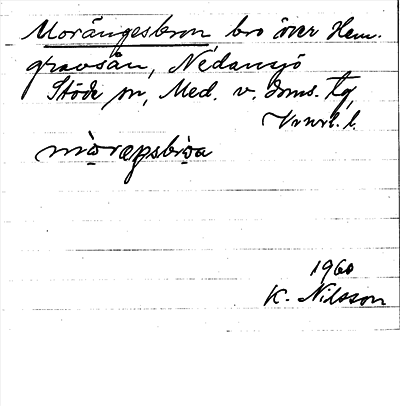 Morängesbron bro över Hem-
gravsån, Nedansjö
Stöde sn, Med. v. doms. tg,
Vrnrl. l.
mòraŋsbròa
1960
K. Nilsson